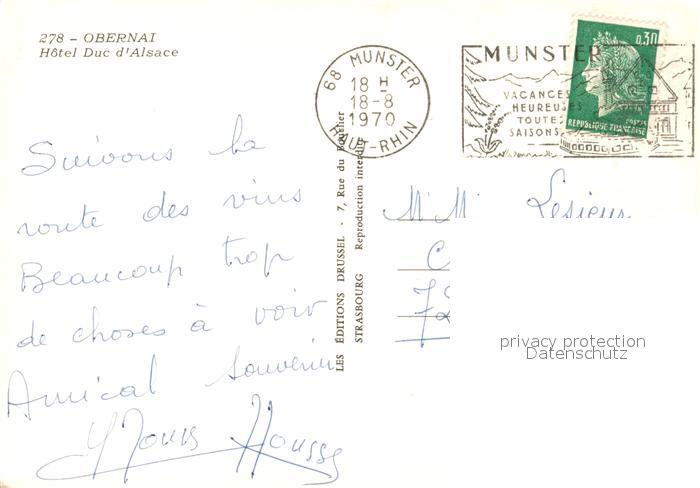 278 – OBERNAI
Hôtel Duc d'Alsace
68 MUNSTER
18 H
18-8
1970
HAUT-RHIN
MUNSTER
VACANCES
HEUREUSES
TOUTES
SAISONS
0,30
POSTES
REPUBLIQUE FRANÇAISE
Suivons la
route des vins
Beaucoup trop
de choses à voir
Amical souvenir
LES ÉDITIONS DRUSSEL - 7, Rue du
STRASBOURG Reproduction interdite
M. M. Lesieur
privacy protection
Datenschutz